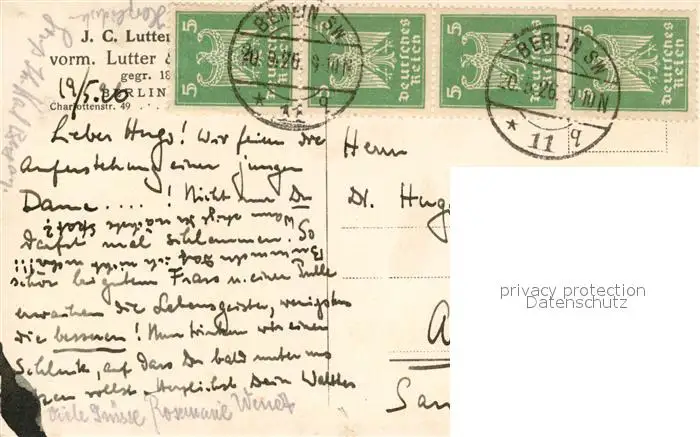 J. C. Lutter
vorm. Lutter &
gegr. 18
BERLIN
Charlottenstr. 49
19/5.26
5 5
Deutsches Reich
5 5
Deutsches Reich
BERLIN SW
20.5.26. 9-10 N
* 11 q
BERLIN SW
20.5.26. 9-10 N
* 11 q
Lieber Hugo! Wir feiern die
Auferstehung einer jungen
Dame ....! Nicht nur Du
darfst mal schlemmen. So
schön bei gutem Frass u. einer Pulle
erwachen die Lebensgeister, wenigstens
die besseren! Nun trinken wir einen
Schluck, auf dass Du bald unter uns
sollst. Herzlichst, Dein Walther
viele Grüsse Rosemarie
Herrn
Dr. Hug
privacy protection
Datenschutz
San